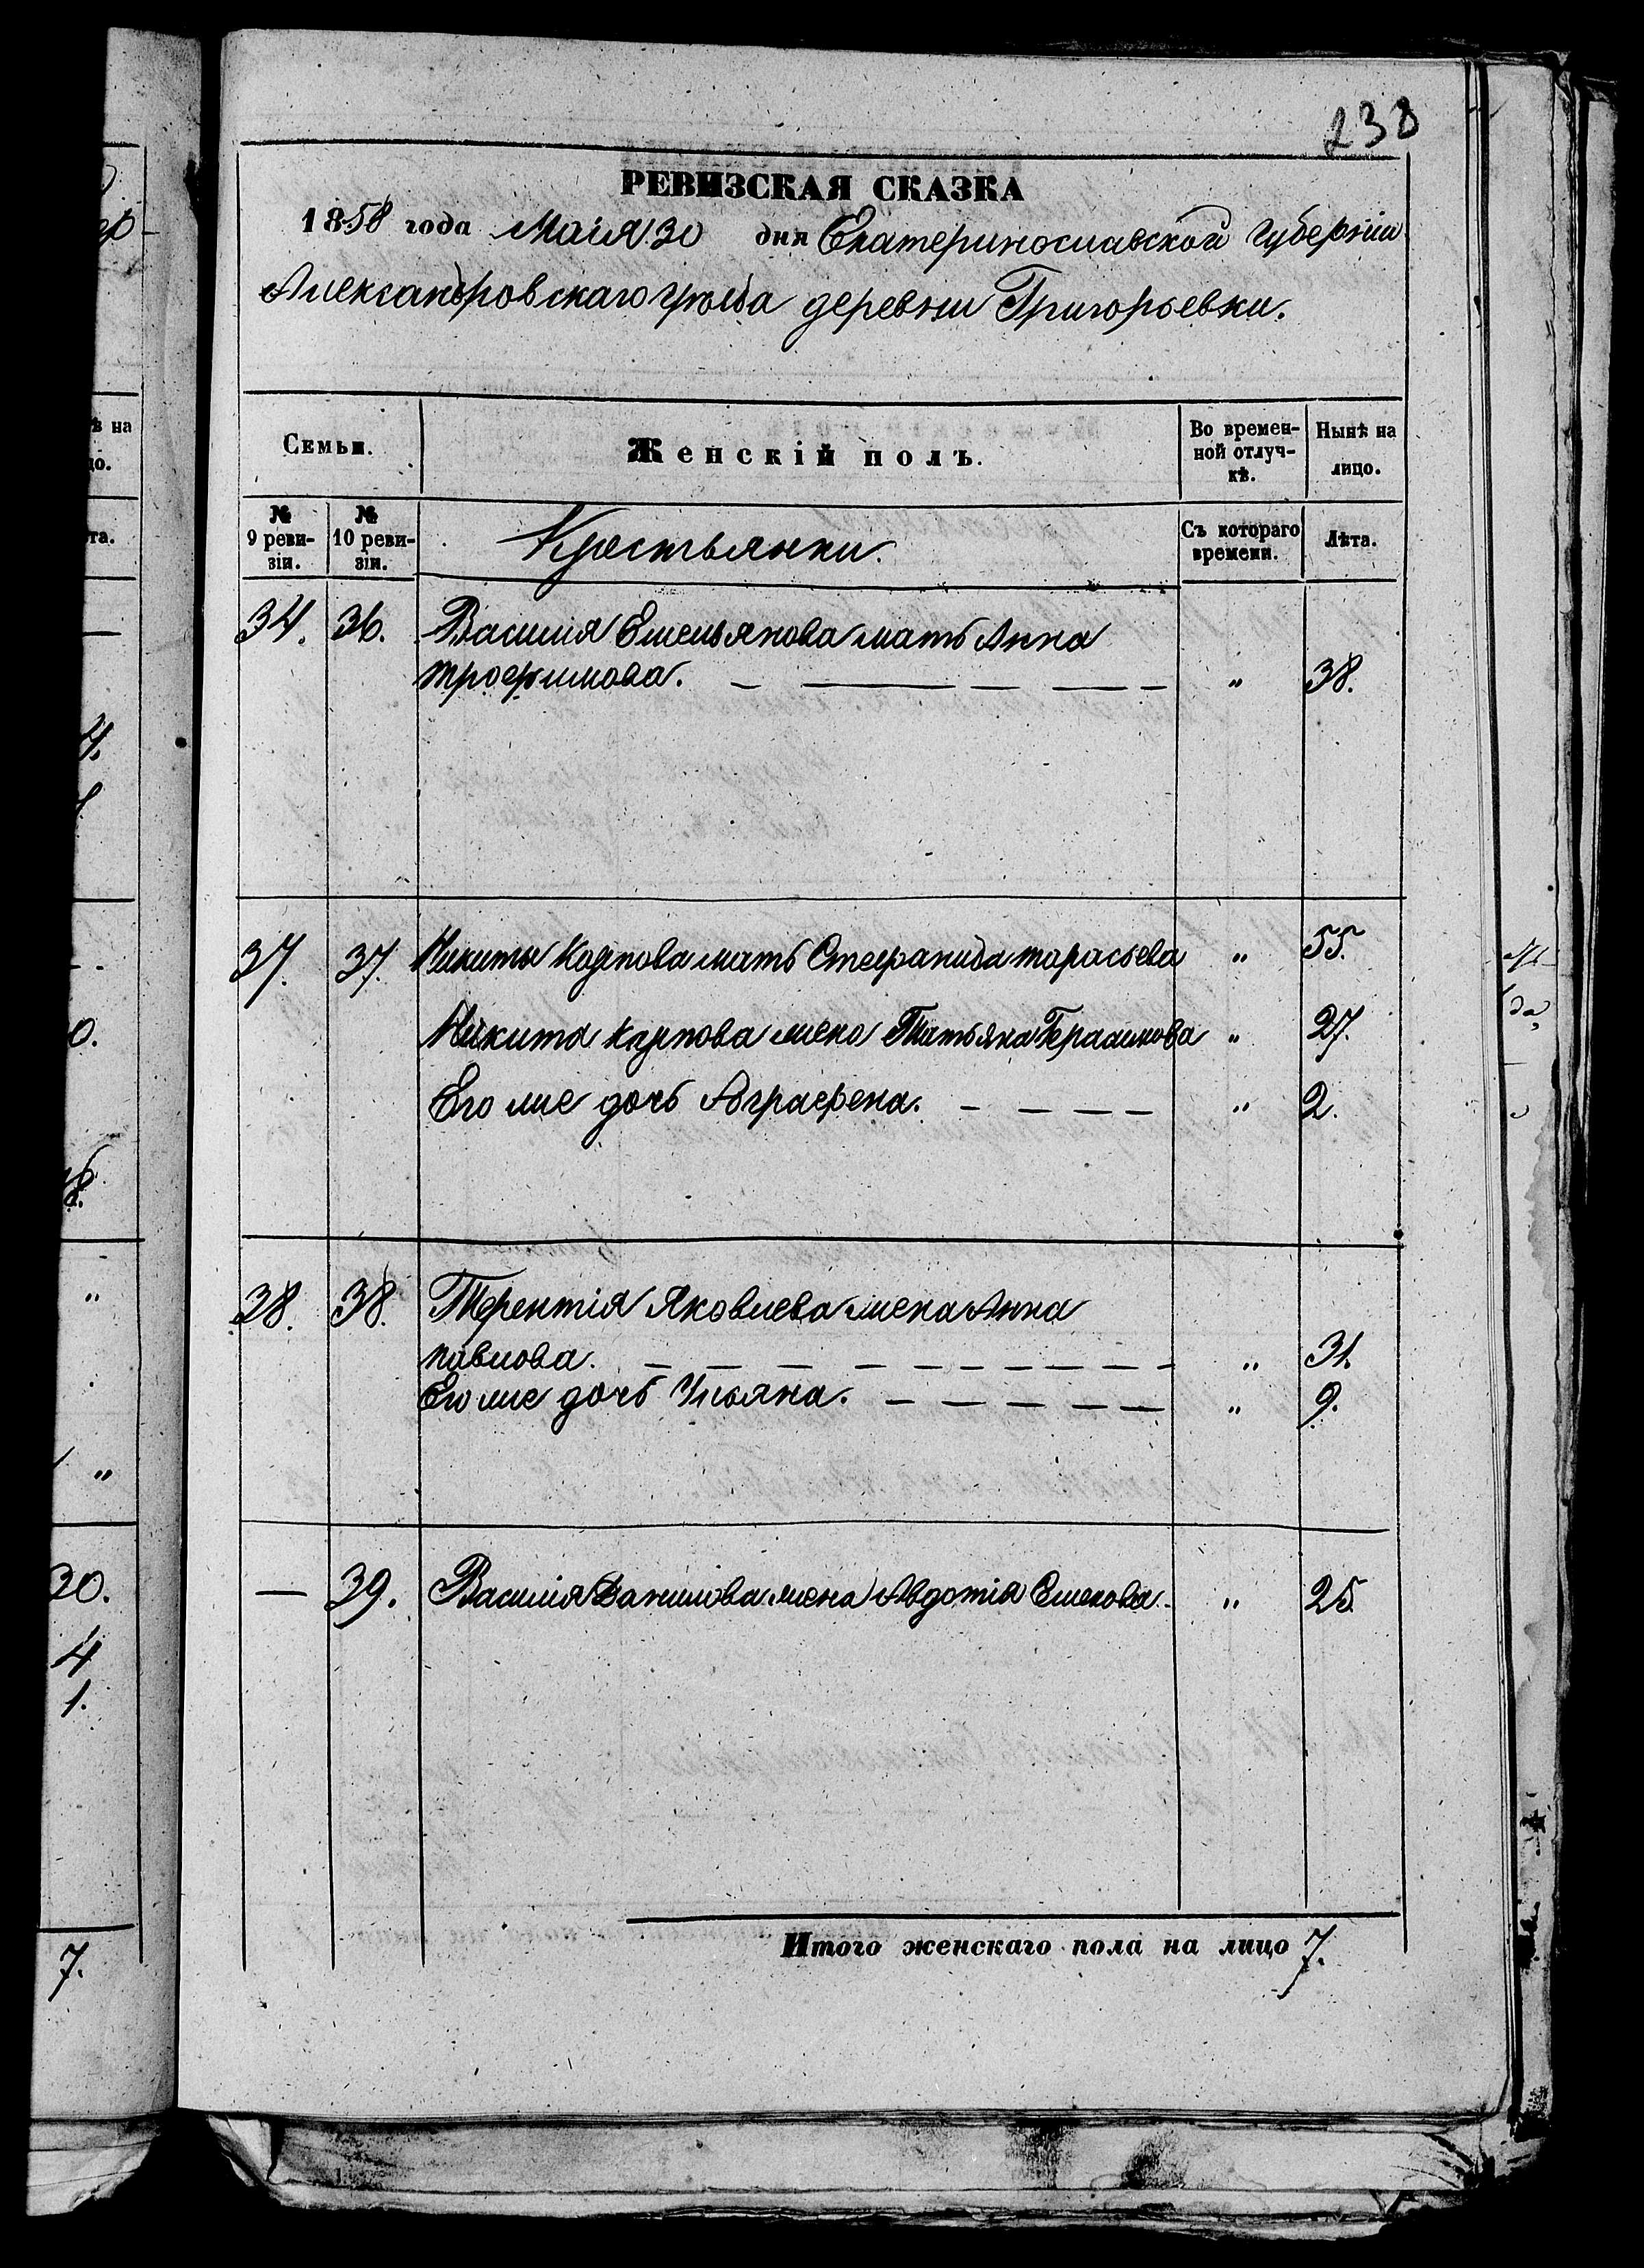 238
РЕВИЗСКАЯ СКАЗКА
1858 года Маія 30 дня Екатеринославской губерніи
Александровскаго уѣзда деревни Григорьевки.
Семьи. Женскій полъ. Во времен-ной отлуч-кѣ. Нынѣ на лицо.
№ 9 реви-зіи. № 10 реви-зіи. Крестьянки. Съ котораго времени. Лѣта.
34. 36. Василия Емельянова мать Анна
трофимова. — — — — „ 38.
37. 37. Никиты Карпова мать Стефанида тарасьева „ 55.
Никита карпова жена Татьяна Герасимова „ 27.
Его же дочь Аграфена. — — — — „ 2.
38. 38. Терентія Яковлева жена Анна
павлова. — — — — — — — — — — „ 31.
Его же дочь Ульяна. — — — — — — „ 9.
— 39. Василія Данилова жена Авдотія Емеѣова „ 25.
Итого женскаго пола на лицо 7.